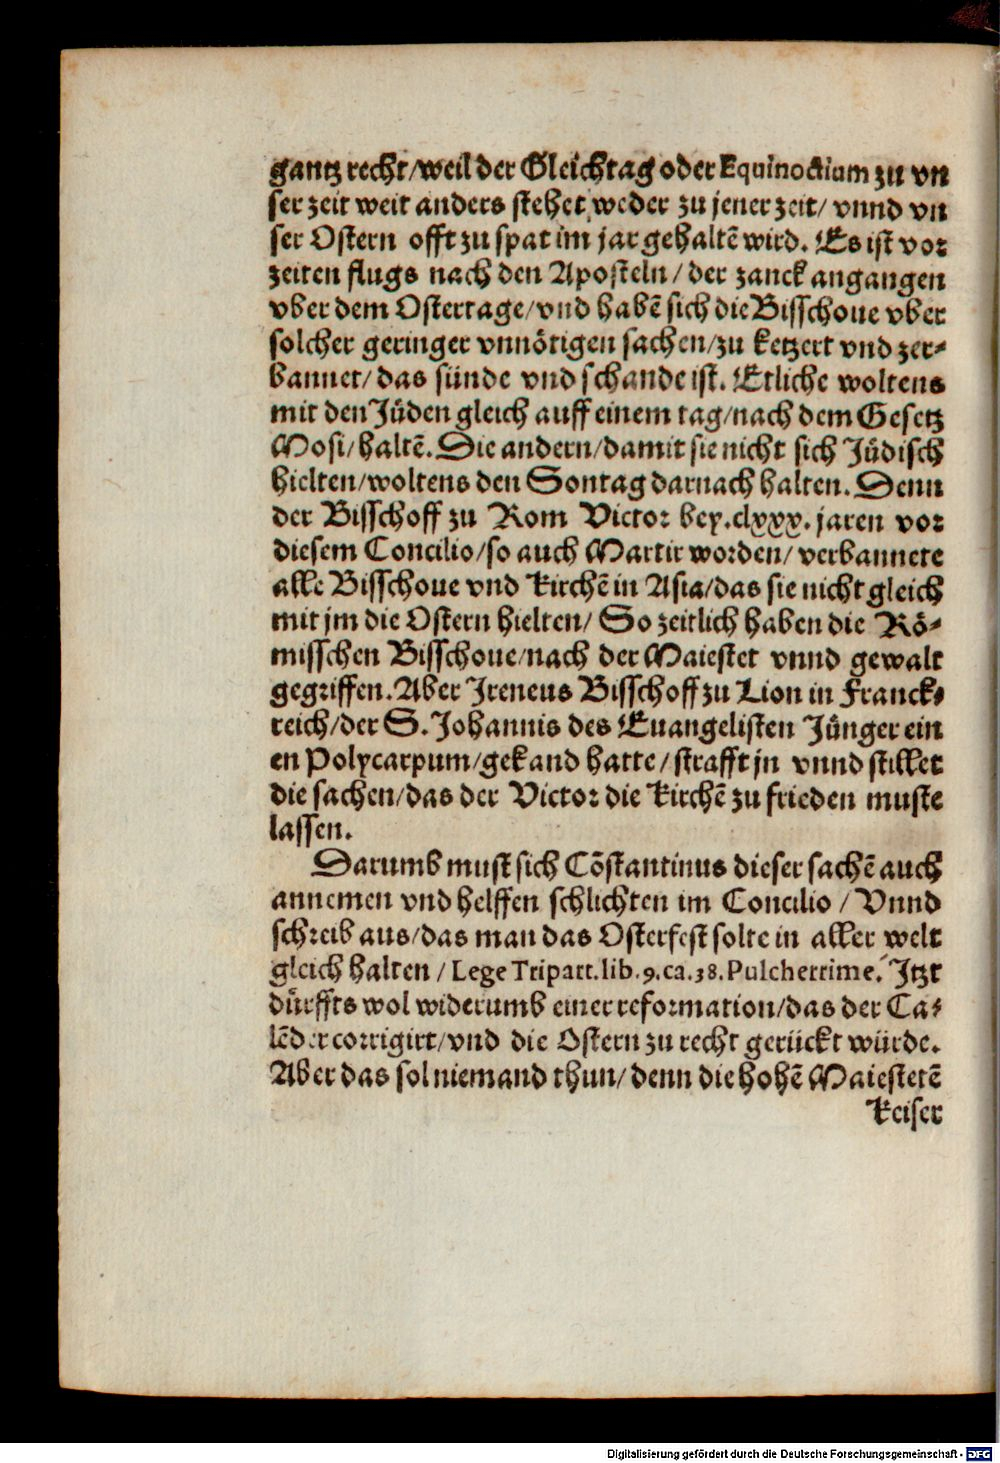 gantz recht/weil der Gleichtag oder Equinoctium zu vn
ser zeit weit anders stehet weder zu jener zeit/ vnnd vn
ser Ostern offt zu spat im jar gehaltē wird. Es ist vor
zeiten flugs nach den Aposteln/ der zanck angangen
vber dem Ostertage/vnd habē sich die Bisschoue vber
solcher geringer vnnötigen sachen/zu ketzert vnd zer-
bannet/das sünde vnd schande ist. Etliche woltens
mit den Jüden gleich auff einem tag/nach dem Gesetz
Mosi/haltē. Die andern/damit sie nicht sich Jüdisch
hielten/woltens den Sontag darnach halten. Denn
der Bisschoff zu Rom Victor bey.clxxx.jaren vor
diesem Concilio/so auch Martir worden/ verbannete
alle Bisschoue vnd Kirchē in Asia/das sie nicht gleich
mit jm die Ostern hielten/ So zeitlich haben die Rö-
misschen Bisschoue/nach der Maiestet vnnd gewalt
gegriffen. Aber Ireneus Bisschoff zu Lion in Franck-
reich/der S. Johannis des Euangelisten Jünger ein
en Polycarpum/gekand hatte/ strafft jn vnnd stillet
die sachen/das der Victor die Kirchē zu frieden muste
lassen.
Darumb must sich Cōstantinus dieser sachē auch
annemen vnd helffen schlichten im Concilio/ Vnnd
schreib aus/das man das Osterfest solte in aller welt
gleich halten/ Lege Tripart.lib.9.ca.38.Pulcherrime. Jtzt
dürffts wol widerumb einer reformation/das der Ca-
lēder corrigirt/vnd die Ostern zu recht gerückt würde.
Aber das sol niemand thun/ denn die hohē Maiestetē
Keiser
Digitalisierung gefördert durch die Deutsche Forschungsgemeinschaft - DFG